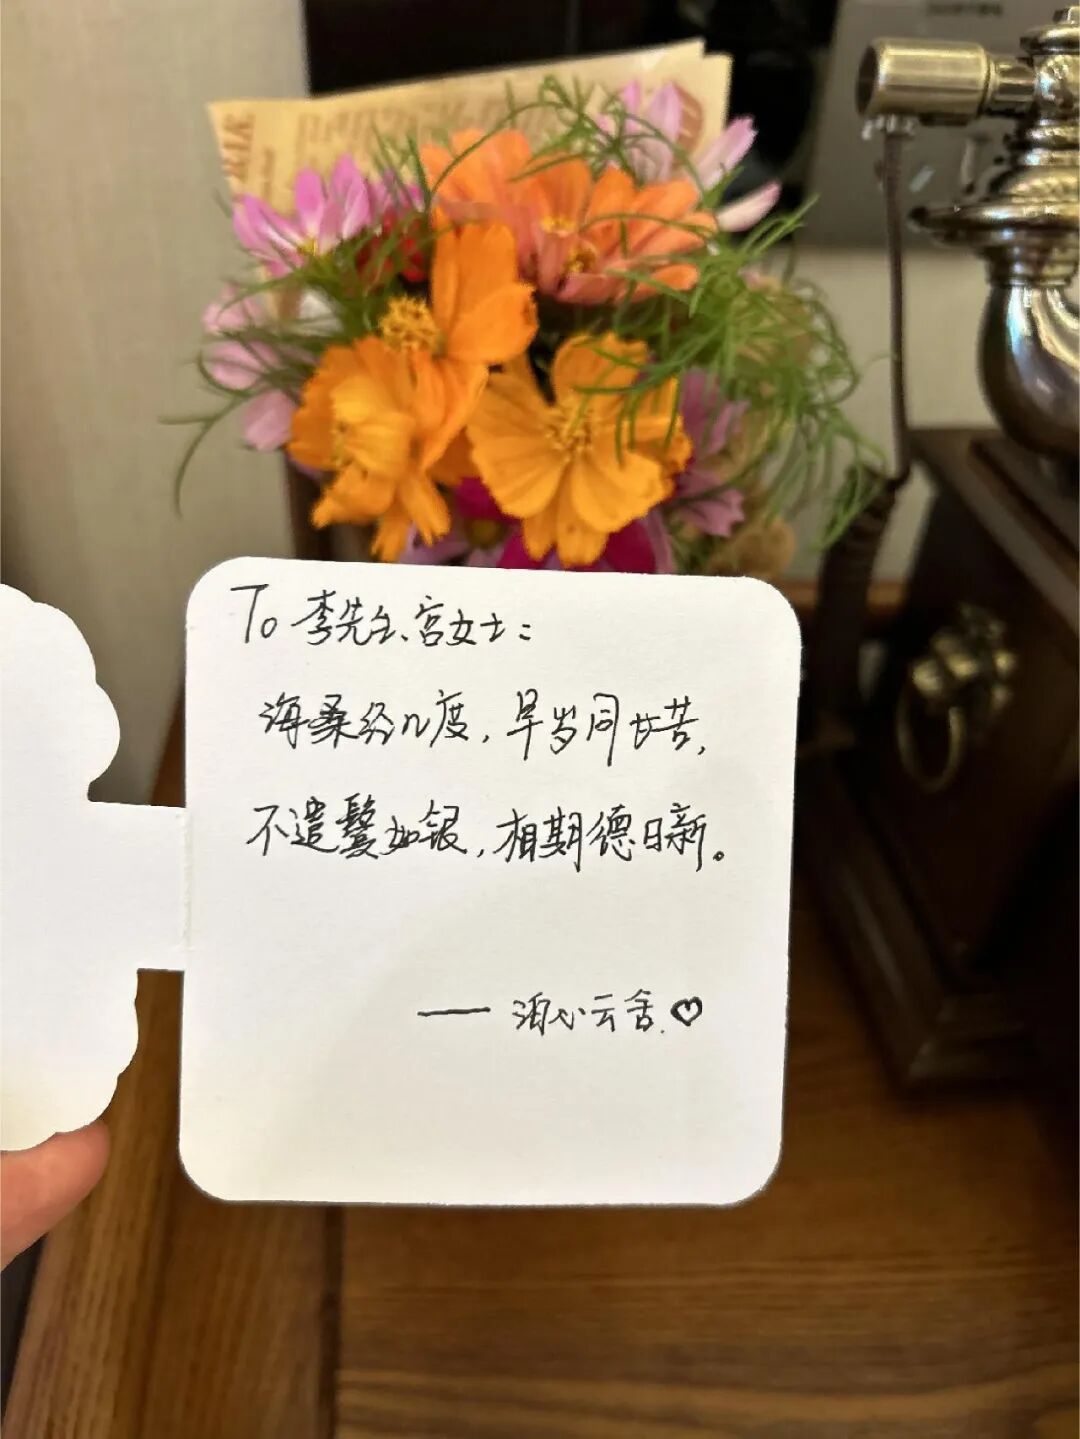 To 李先生、宫女士：
海桑经几度，早岁同甘苦，
不遣鬓如银，相期德日新。
—— 泊心云舍 ♡